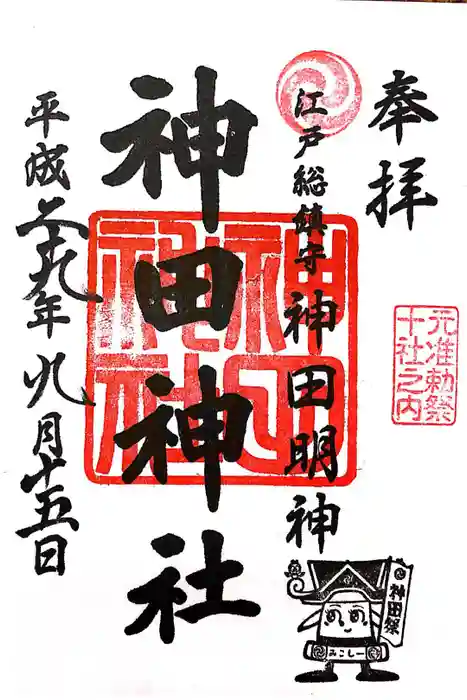 奉拝
元准勅祭
十社之内
江戸総鎮守 神田明神
神田神社
神田
神社
平成二十九年九月十五日
神田祭
みこしー